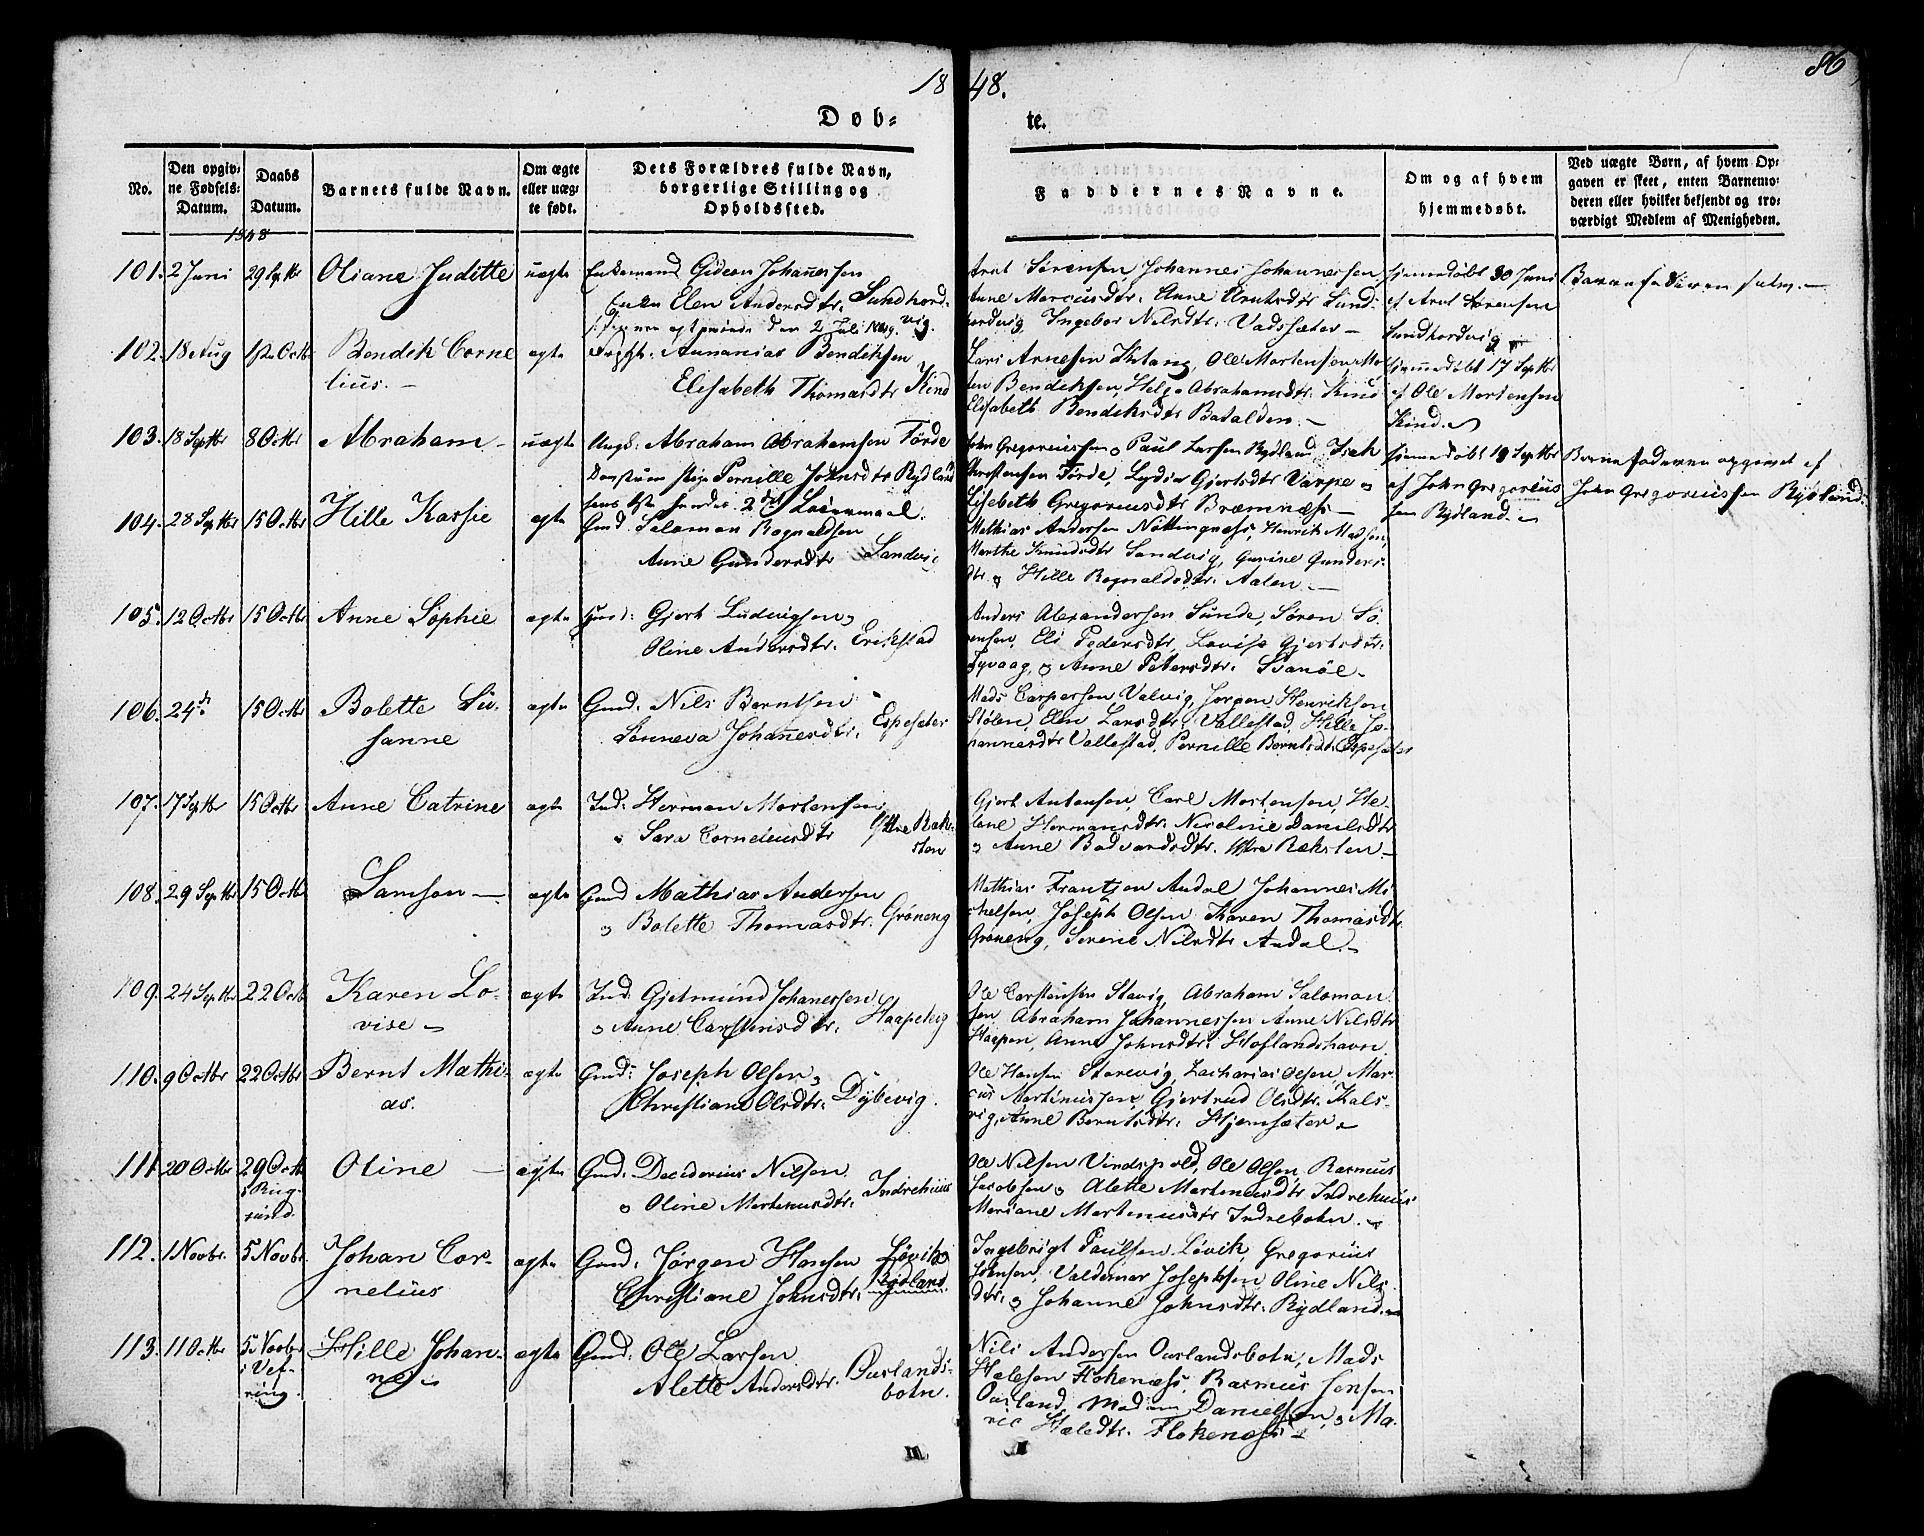 18 48.
86
Døb-
te.
No.
Den opgiv-
ne Fødsels-
Datum.
Daabs
Datum.
Barnets fulde Navn.
Om ægte
eller uæg-
te født.
Dets Forældres fulde Navn,
borgerlige Stilling og
Opholdssted.
Faddernes Navne.
Om og af hvem
hjemmedøbt.
Ved uægte Børn, af hvem Op-
gaven er skeet, enten Barnemo-
deren eller hvilket bekjendt og tro-
værdigt Medlem af Menigheden.
1848
101. 2 Juni 29 Septbr Oliane Juditte uægte Enkemand Gideon Johannessen
Enken Elen Andersdtr. Sundhord-
vig.
Arnt Sørensen Johannes Johannessen
Anne Marcusdtr. Anne Arntsdtr Sund-
hordvig, Ingebor Nilsdtr. Vadsæter
hjemmedøbt 30 Juni
af Arnt Sørensen
Sundhordvig
Barnefaderen selv.
102. 18 Aug 1ste Octbr Bendik Corne
lius. ægte Ananias Bendiksen
Elisabeth Thomasdtr Kind
Lars Arnesen, Ole Mortensen, Mor
ten Bendiksen, Helge Abrahamsdtr. Kind
Elisabeth Bendiksdtr Batalden.
hjemmedøbt 17 Septbr
af Ole Mortensen
Kind.
103. 18 Septbr 8 Octbr Abraham uægte Ungk: Abraham Abrahamsen Førde
Pernille Johnsdtr Rydland
hans 1ste hendes 2det Leiermaal.
John Gregoriussen, Paul Larsen Rydland, Isak
Christensen Førde, Lydia Gjertsdtr Varpe
Lisebeth Gregoriusdtr Bremnæs
hjemmedøbt 19 Septbr
af John Gregorius
sen Rydland.
Barnefaderen opgivet af
John Gregoriussen Rydland.
104. 28 Septbr 15 Octbr Hille Kassie ægte Gmd. Salamon Rognaldsen
Anne Gundersdtr Sandvig
Mathias Andersen Nøttingnæss, Henrik Madsen,
Marthe Knudsdtr Sandvig, Gurine Gunders-
dtr Hille Rognaldsdtr. Aalen
105. 12 Octbr 15 Octbr Anne Sophie ægte Huusd: Gjert Ludvigsen
Oline Andersdtr. Erikstad
Anders Alexandersen Sunde, Søren Sø
rensen, Eli Pedersdtr, Lovise Gjertsdtr.
Tyvaag, Anne Petersdtr. Svanøe
106. 24de 15 Octbr Bolette Su-
sanne ægte Gmd: Nils Berntsen
Sønneva Johannesdtr. Espesæter
Mads Caspersen Valvig, Jørgen Henriksen
Stølen, Elen Larsdtr Vallestad, Hille Jo-
hannesdtr Vallestad, Pernille Berntsdtr. Espesæter
107. 17 Septbr 15 Octbr Anne Catrine ægte Ind: Herman Mortensen
Sara Corneliusdtr Yttre Ræk-
sten
Gjert Antonsen Carl Mortensen, He-
lene Hermansdtr. Nicoline Danilsdtr
Anne Bodvarsdtr. Yttre Ræksten
108. 29 Septbr 15 Octbr Samson ægte Gmd Mathias Andersen
Bolette Thomasdtr. Grøneng
Mathias Frantsen Andal Johannes Mi
chelsen, Joseph Olsen Karen Thomasdtr.
Grøneng, Serine Nilsdtr Andal.
109. 24 Septbr 22 Octb Karen Lo-
vise ægte Ind Gjetmund Johanessen
Anne Carstensdtr.
Ole Carstensen Stavig, Abraham Salomon
sen Abraham Johannessen Anne Nilsdtr
Anne Johnsdtr. Hoflandshavn
110. 9 Octbr 22 Octbr Bernt Mathi-
as. ægte Gmd: Joseph Olsen
Christiane Olsdtr. Dybevig.
Ole Hansen Storevig, Zacharias Olsen Mar-
cus Martinussen, Gjertrud Olsdtr. Kals-
vig, Anne Berntsdtr. Hjemsæter
111. 20 Octbr 29 Octb
i Ring-
sund
Oline ægte Gmd: Deciderius Nilsen
Oline Martinusdtr. Indrehuus
Ole Nilsen Vindspold, Ole Olsen, Rasmus
Jacobsen Alette Martinusdtr Indrehuus
Mariane Martinusdtr Indrebotn.
112. 1 Novbr. 5 Novbr Johan Cor-
nelius ægte Gmd: Jørgen Hansen Løvik
Christiane Johnsdtr. Rydland
Ingebrigt Paulsen Løvik, Gregorius
Johnsen, Valdemar Josephsen Oline Nils
dtr. Johanne Johnsdtr. Rydland.
113. 11 Octbr 5 Novbr
i Vef-
ring.
Hille Johan-
ne ægte Gmd: Ole Larsen
Alette Andersdtr. Ourlands-
botn.
Nils Andersen Ourlandsbotn, Mads
Halesen Flokenæss, Rasmus Jensen
Ourland, Madam Danielsen, Ma-
rie Halsdtr. Flokenæss